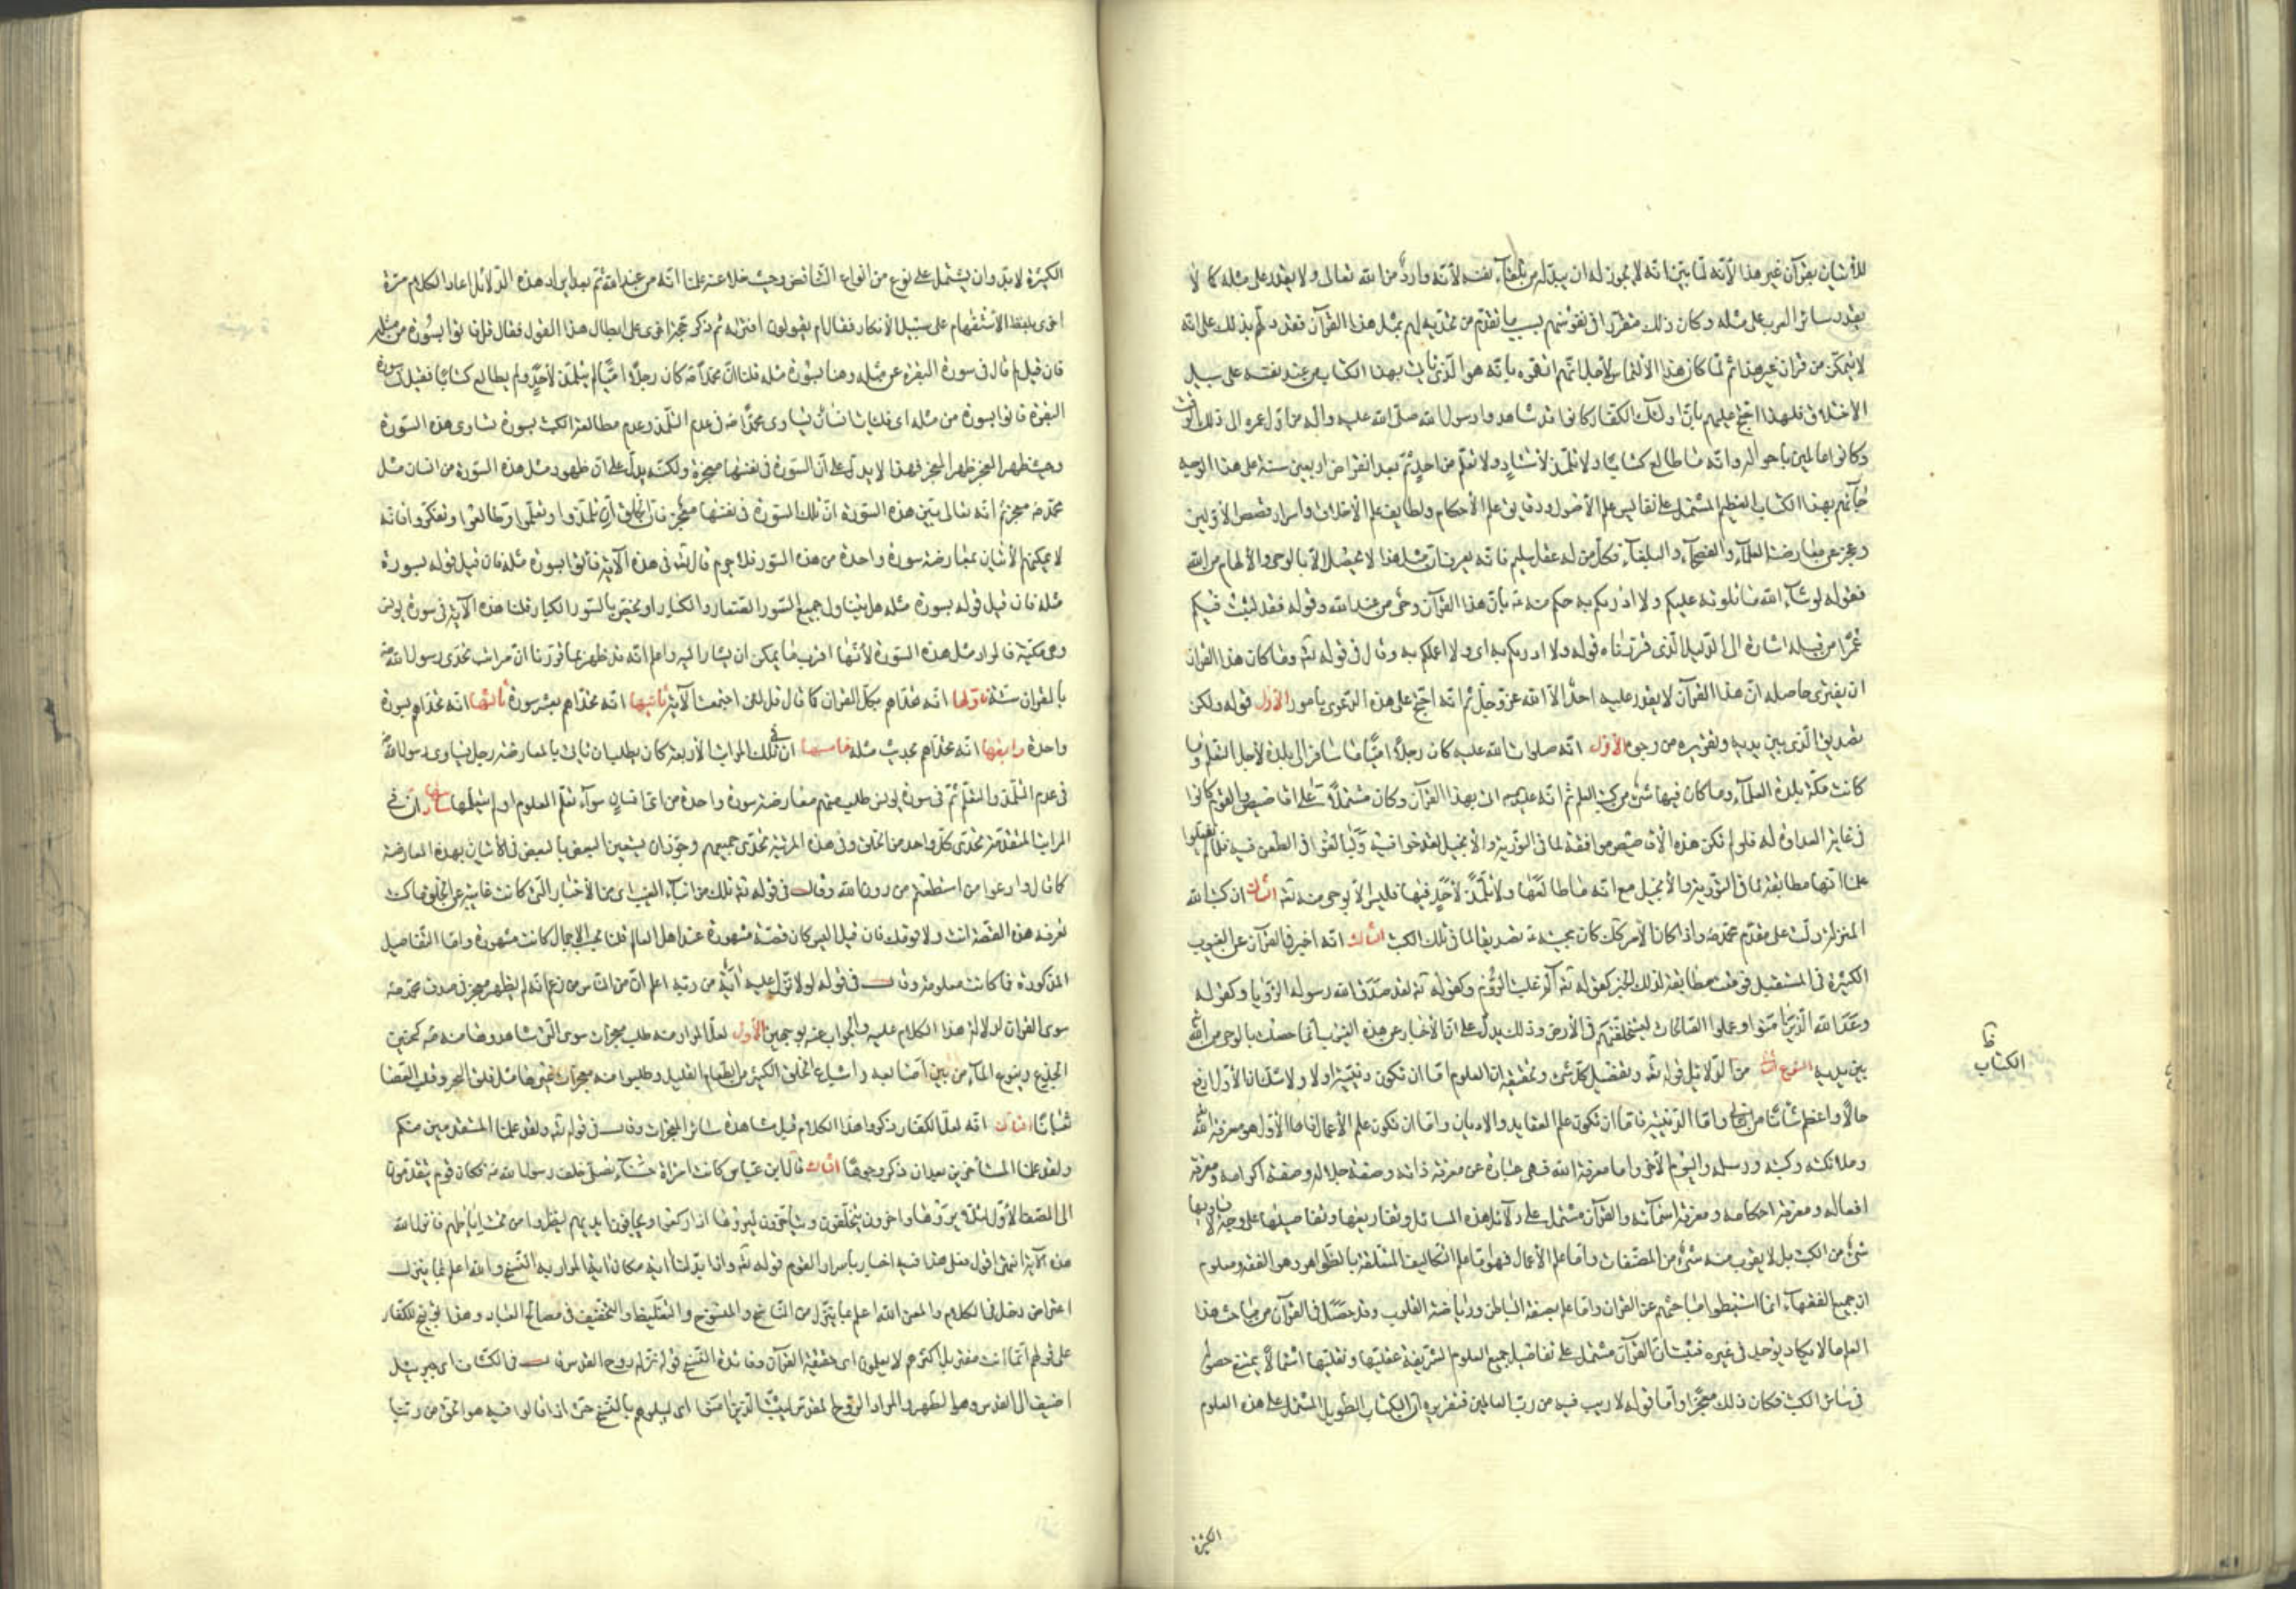 للاتيان بقرآن غير هذا لأنّه لمّا بيّن انّه لا يجوز له ان يبدّله من تلقاء نفسه لأنّه وارد من الله تعالى ولا يقدر على مثله كما لا
يقدر سائر العرب على مثله وكان ذلك متقرّرا في نفوسهم بسبب ما تقدّم من تحدّيه لهم بمثل هذا القرآن فقد دلّهم بذلك على انّه
لا يتمكّن من قرآن غير هذا ثم لمّا كان هذا الالتماس لأجل انّهم اتهموه بانّه هو الّذي يأتي بهذا الكتاب من عند نفسه على سبيل
الاختلاق فلهذا احتجّ عليهم بأنّ اولئك الكفّار كانوا قد شاهدوا رسول الله صلّى الله عليه وآله من اوّل عمره الى ذلك الوقت
وكانوا عالمين باحواله وانّه ما طالع كتابا ولا تلمّذ لأستاد ولا تعلّم من احد ثمّ بعد انقراض اربعين سنة على هذا الوجه
جاءهم بهذا الكتاب العظيم المشتمل على نفايس علم الأصول ودقايق علم الأحكام ولطايف علم الأخلاق واسرار قصص الأوّلين
وعجز عن معارضته العلماء والفصحاء والبلغاء فكلّ من له عقل سليم فانّه يعرف انّ مثل هذا لا يحصل الّا بالوحي والألهام من الله
فقوله لو شاء الله ما تلوته عليكم ولا ادريكم به حكم منه بأنّ هذا القرآن وحى من عند الله وقوله فقد لبثت فيكم
عمرا من قبله اشارة الى الدّليل الّذي قرّرناه قوله ولا ادريكم به اى ولا اعلمكم به وقال في قوله تع وما كان هذا القرآن
ان يفترى حاصله انّ هذا القرآن لا يقدر عليه احد الّا الله عزّ وجلّ ثم انّه احتجّ على هذه الدّعوى بامور الأوّل قوله ولكن
تصديق الّذي بين يديه وتقريره من وجوه الأوّل انّه صلوات الله عليه كان رجلا امّيّا ما سافر الى بلدة لأجل التعلّم وما
كانت مكّة بلدة العلماء وما كان فيها شىء من كتب العلم ثم انّه عليه اتى بهذا القرآن وكان مشتملا على اقاصيص والقوم كانوا
في غاية العداوة له فلو لم تكن هذه الأقاصيص موافقة لما في التّورية والأنجيل لقدحوا فيه ولبالغوا في الطّعن فيه فلمّا لم يفعلوا
علمنا انّها مطابقة لما في التّورية والأنجيل مع انّه ما طالعها ولا تلمّذ لأحد فيها فليس الّا بوحى منه تع الثاني ان كتب الله
المنزلة دلّت على مقدم محمّد واذا كان الأمر كك كان مجيئه تصديقا لما في تلك الكتب الثالث انّه اخبر في القرآن عن الغيوب
الكثيرة في المستقبل فوقعت مطابقة لذلك الخبر كقوله تع آلم غلبت الرّوم وكقوله تع لقد صدق الله رسوله الرّؤيا وكقوله
وعد الله الّذين آمنوا وعملوا الصّالحات ليستخلفنّهم في الأرض وذلك يدلّ على انّ الأخبار عن هذه الغيوب انّما حصلت بالوحى من الله
بين يديه النوع الثاني من الدّلائل قوله تع وتفصيل كلّ شىء وتحقيقه ان العلوم امّا ان تكون دينيّة او لا ولا شك ان الأوّل ارفع
حالا واعظم شانا من الثاني وامّا الدّينيّة فامّا ان تكون علم العقايد والاديان وامّا ان تكون علم الأعمال فامّا الأوّل فهو معرفة الله
وملائكته وكتبه ورسله واليوم الآخر واما معرفة الله فهى عبارة عن معرفة ذاته وصفة جلاله وصفة اكرامه ومعرفة
افعاله ومعرفة احكامه ومعرفة اسمائه والقرآن مشتمل على دلائل هذه المسائل وتفاريعها وتفاصيلها على وجه لا يساويها
شىء من الكتب بل لا يقرب منه شىء من المصنّفات وامّا علم الأعمال فهو امّا علم التكاليف المتعلّقة بالظّواهر وهو الفقه ومعلوم
ان جميع الفقهاء انّما استنبطوا مباحثهم عن القرآن وامّا علم بصفة الباطن ورياضة القلوب وقد حصل في القرآن من مباحث هذا
العلم ما لا يكاد يوجد في غيره فثبت انّ القرآن مشتمل على تفاصيل جميع العلوم الشّريفة عقليّها ونقليّها اشتمالا يمتنع حصوله
في سائر الكتب فكان ذلك معجزا وامّا قوله لا ريب فيه من ربّ العالمين فتقريره انّ الكتاب الطّويل المشتمل على هذه العلوم
ظ
الكتاب
الكثيرة
الكثيرة لا بدّ وان يشتمل على نوع من انواع التّناقض وحيث خلا عنه علمنا انّه من عند الله ثمّ بعد ايراد هذه الدّلائل اعاد الكلام مرّة
اخرى بلفظ الأستفهام على سبيل الأنكار فقال ام يقولون افتراه ثم ذكر حجّة اخرى على ابطال هذا القول فقال قل فاتوا بسورة من مثله
فان قيل لم قال في سورة البقرة من مثله وهنا بسورة مثله قلنا انّ محمّدا كان رجلا امّيّا لم يتلمّذ لأحد ولم يطالع كتابا فقيل في سورة
البقرة فاتوا بسورة من مثله اى فليات انسان يساوى محمّدا في عدم التلمّذ وعدم مطالعة الكتب بسورة تساوى هذه السّورة
وحيث ظهر العجز ظهر المعجز فهذا لا يدلّ على انّ السّورة في نفسها معجزة ولكنّه يدلّ على انّ ظهور مثل هذه السّورة من انسان مثل
محمّد معجز ثم انّه تعالى بيّن هذه السّورة انّ تلك السّورة في نفسها معجز فانّ الخلق وان تلمّذوا وتعلّموا وطالعوا وتفكّروا فانّه
لا يمكنهم الأتيان بمعارضة سورة واحدة من هذه السّور فلا جرم قال تع في هذه الآية فأتوا بسورة مثله فان قيل قوله بسورة
مثله فان قيل قوله بسورة مثله هل يتناول جميع السّور الصّغار والكبار او يختصّ بالسّور الكبار قلنا هذه الآية في سورة يونس
وهى مكيّة فالمراد مثل هذه السّورة لأنّها اقرب ما يمكن ان يشار اليه واعلم انّه قد ظهر بما قرّرنا انّ مراتب تحدّى رسول الله
بالقرآن ستّة اوّلها انّه تحدّاهم بكلّ القرآن كما قال قل لئن اجتمعت الآية ثانيها انّه تحدّاهم بعشر سورة ثالثها انّه تحدّاهم بسورة
واحدة رابعها انّه تحدّاهم بحديث مثله خامسها ان في تلك المراتب الأربعة كان يطلب ان ياتى بالمعارضة رجل يساوى رسول الله
في عدم التلمّذ والتعلّم ثمّ في سورة يونس طلب منهم معارضة سورة واحدة من اىّ انسان سواء تعلّم العلوم او لم يتعلّمها سادسها ان في
المراتب المتقدّمة تحدّى كلّ واحد من الخلق وفي هذه المرتبة تحدّى جميعهم وجوّز ان يستعين البعض بالبعض في الأتيان بهذه المعارضة
كما قال وادعوا من استطعتم من دون الله وقال في قوله تع تلك من انباء الغيب اى من الأخبار الّتي كانت غايبة عن الخلق ما كنت
تعرف هذه القصّة انت ولا قومك فان قيل اليس كان قصّة مشهورة عند اهل العالم قلنا بحسب الأجمال كانت مشهورة وامّا التّفاصيل
المذكورة فما كانت معلومة وقال في قوله لولا نزل عليه آية من ربّه اعلم انّ من النّاس من زعم انّه لم يظهر معجز في صدق محمّد
سوى القرآن لدلالة هذا الكلام عليه والجواب عنه بوجهين الأوّل لعلّ المراد منه طلب معجزات سوى الّتي شاهدوها منه كحنين
الجذع ونبوع الماء من بين اصابعه واشباع الخلق الكثير من الطّعام القليل وطلبوا منه معجزات غيرها مثل فلق البحر وقلب العصا
ثعبانا الثاني انّه لعلّ الكفّار ذكروا هذا الكلام قبل مشاهدة سائر المعجزات وقال في قوله تع ولقد علمنا المستقدمين منكم
ولقد علمنا المستأخرين بعد ان ذكر وجوها الثالث قال ابن عبّاس كانت امرأة حسناء تصلّى خلف رسول الله فكان قوم يتقدّمون
الى الصّف الأوّل لئلّا يروها وآخرون يتخلّفون ويتأخّرون ليروها اذا ركعوا ويجافون ايديهم لينظروا من تحت اباطهم فانزل الله
هذه الآية انتهى اقول فعلى هذا فيه اخبار بأسرار القوم قوله تع واذا بدّلنا آية مكان آية المراد به النّسخ والله اعلم بما ينزل
اعتراض دخل في الكلام والمعنى الله اعلم بما ينزّل من النّاسخ والمنسوخ والتّغليظ والتّخفيف في مصالح العباد وهذا توبيخ للكفّار
على قولهم انّما انت مفتر بل اكثرهم لا يعلمون اى حقيقة القرآن وفائدة النّسخ قوله نزّله روح القدس قال في الكشّاف اى جبرئيل
اضيف الى القدس وهو الطّهر والمراد الرّوح المقدّس ليثبّت الّذين آمنوا اى ليبلوهم بالنّسخ حتّى اذا قالوا فيه هو الحقّ من ربّنا